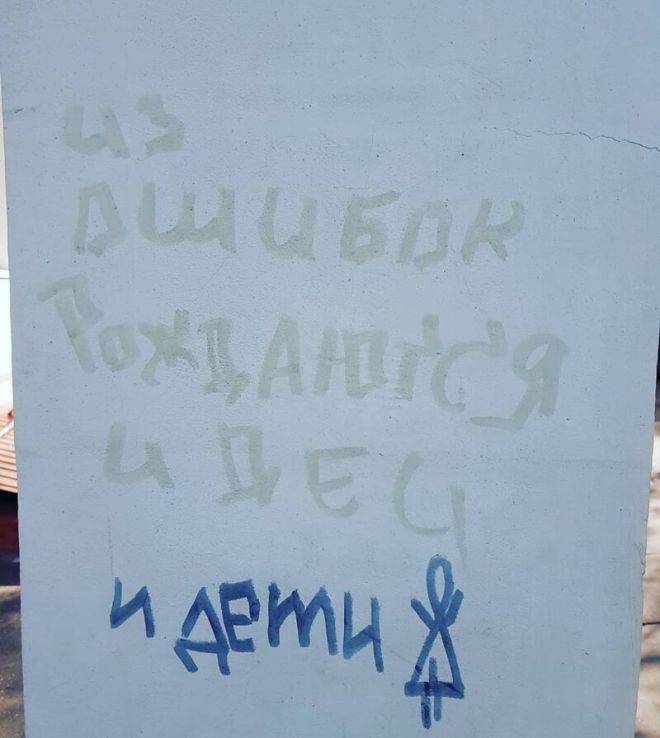 из
ошибок
рождаются
идец
и дети